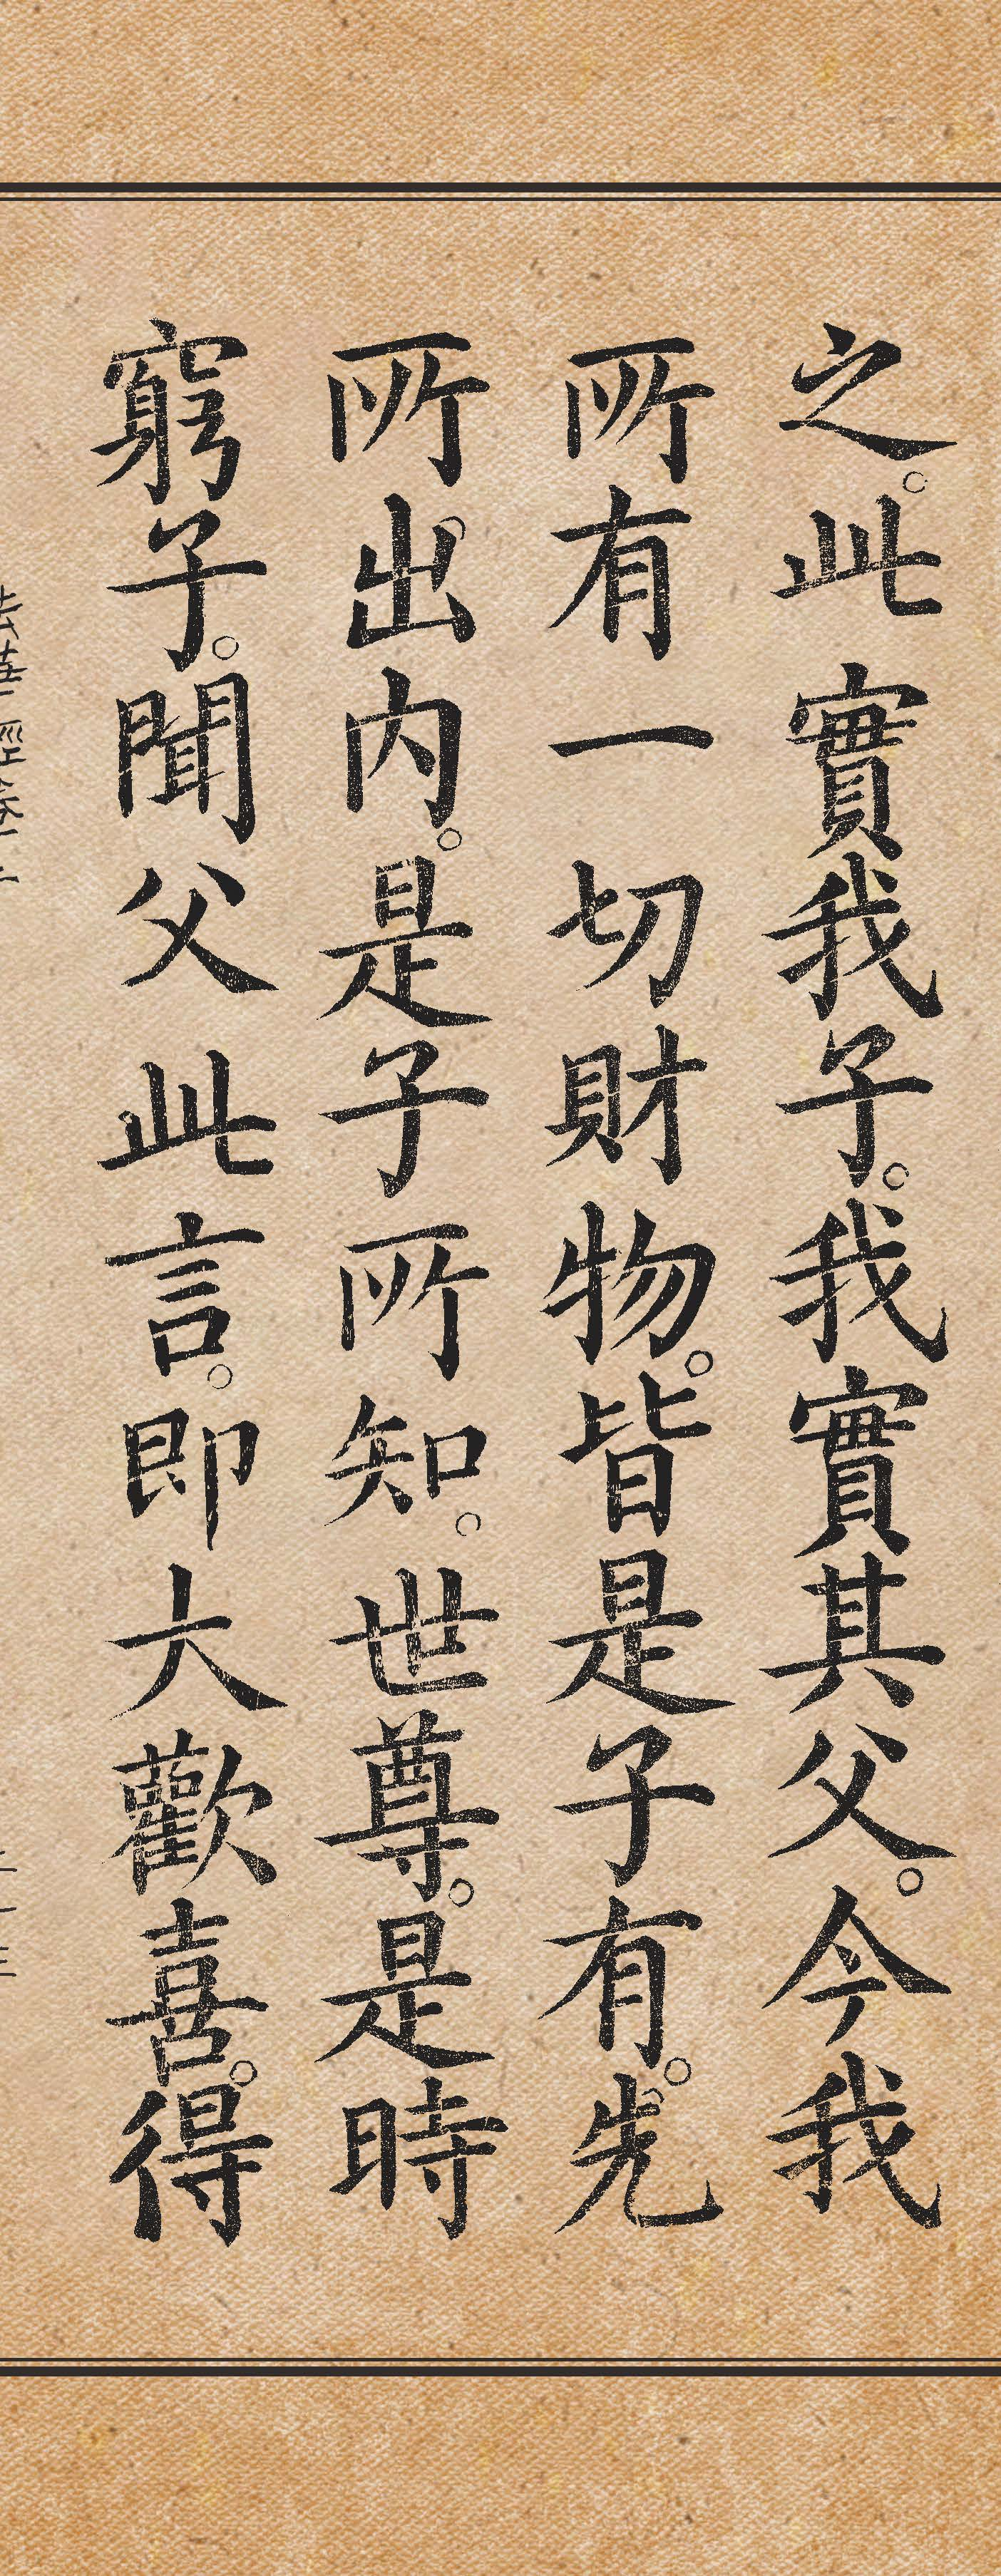 之。此實我子。我實其父。今我
所有一切財物。皆是子有。先
所出内。是子所知。世尊。是時
窮子。聞父此言。即大歡喜。得